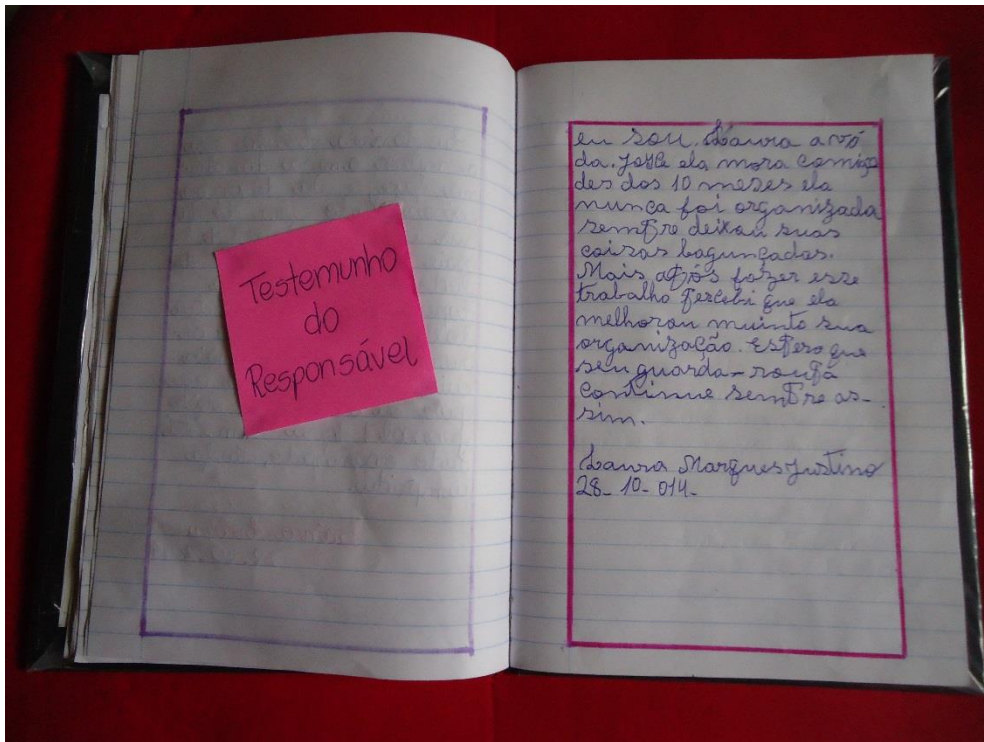 Testemunho
do
Responsável
eu sou. Laura a vó
da. Joyce ela mora comigo
des dos 10 mezes ela
nunca foi organizada
sempre deixou suas
coisas bagunçadas.
Mais após fazer esse
trabalho percebi que ela
melhorou muinto sua
organização. Espero que
seu guarda-roupa
continue sempre as-
sim.
Laura Marques Justino
28-10-014-